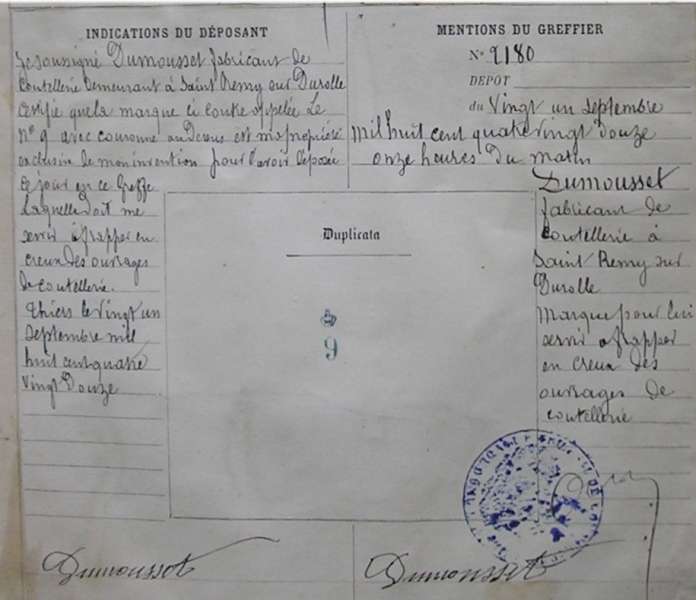 INDICATIONS DU DÉPOSANT
Je soussigné Dumousset fabricant de
coutellerie demeurant à Saint Remy sur Durolle
certifie que la marque ci contre appelée Le
n° 9 avec couronne au dessus est ma propriété
exclusive de mon invention pour l'avoir déposée
ce jour en ce Greffe
laquelle doit me
servir à frapper en
creux des ouvrages
de coutellerie.
Thiers le vingt un
septembre mil
huit cent quatre
vingt douze
MENTIONS DU GREFFIER
N° 2180
DEPOT
du vingt un septembre
mil huit cent quatre vingt douze
onze heures du matin
Dumousset
fabricant de
coutellerie à
Saint Remy sur
Durolle
marque pour lui
servir à frapper
en creux des
ouvrages de
coutellerie
Duplicata
9
Dumousset
Dumousset